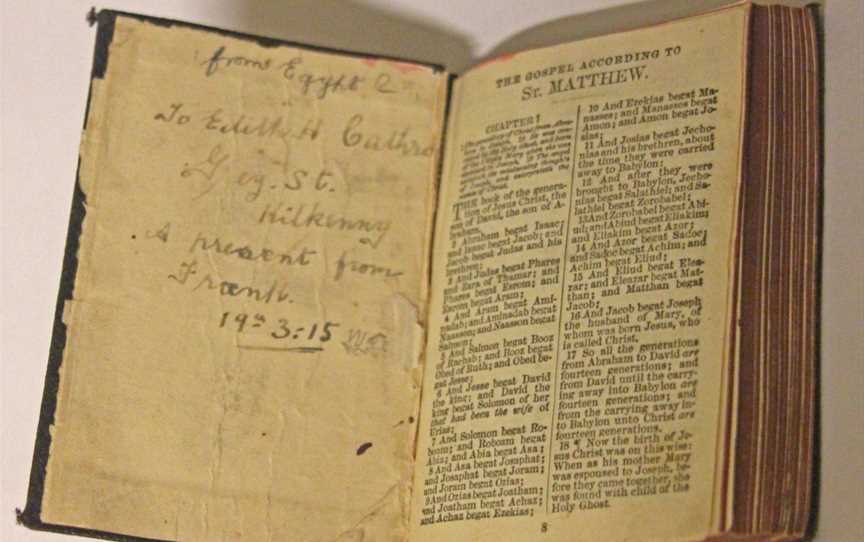 from Egypt
To Edith H Cathro
Geg. St.
Kilkenny
A present from
Frank.
19th 3:15
THE GOSPEL ACCORDING TO
St. MATTHEW.
CHAPTER I
THE book of the genera-
tion of Jesus Christ, the
son of David, the son of A-
braham.
2 Abraham begat Isaac;
and Isaac begat Jacob; and
Jacob begat Judas and his
brethren;
3 And Judas begat Phares
and Zara of Thamar; and
Phares begat Esrom; and
Esrom begat Aram;
4 And Aram begat Ami-
nadab; and Aminadab begat
Naasson; and Naasson begat
Salmon;
5 And Salmon begat Booz
of Rachab; and Booz begat
Obed of Ruth; and Obed be-
gat Jesse;
6 And Jesse begat David
the king; and David the
king begat Solomon of her
that had been the wife of
Urias;
7 And Solomon begat Ro-
boam; and Roboam begat
Abia; and Abia begat Asa;
8 And Asa begat Josaphat;
and Josaphat begat Joram;
and Joram begat Ozias;
9 And Ozias begat Joatham;
and Joatham begat Achaz;
and Achaz begat Ezekias;
10 And Ezekias begat Ma-
nasses; and Manasses begat
Amon; and Amon begat Jo-
sias;
11 And Josias begat Jecho-
nias and his brethren, about
the time they were carried
away to Babylon:
12 And after they were
brought to Babylon, Jecho-
nias begat Salathiel; and Sa-
lathiel begat Zorobabel;
13 And Zorobabel begat Abi-
ud; and Abiud begat Eliakim;
and Eliakim begat Azor;
14 And Azor begat Sadoc;
and Sadoc begat Achim; and
Achim begat Eliud;
15 And Eliud begat Elea-
zar; and Eleazar begat Mat-
than; and Matthan begat
Jacob;
16 And Jacob begat Joseph
the husband of Mary, of
whom was born Jesus, who
is called Christ.
17 So all the generations
from Abraham to David are
fourteen generations; and
from David until the carry-
ing away into Babylon are
fourteen generations; and
from the carrying away in-
to Babylon unto Christ are
fourteen generations.
18 ¶ Now the birth of Je-
sus Christ was on this wise:
When as his mother Mary
was espoused to Joseph, be-
fore they came together, she
was found with child of the
Holy Ghost.
8